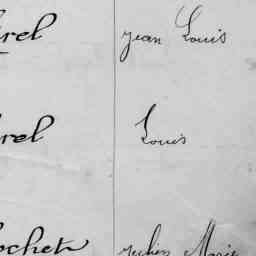 rel jean Louis
rel Louis
ochet julien Marie